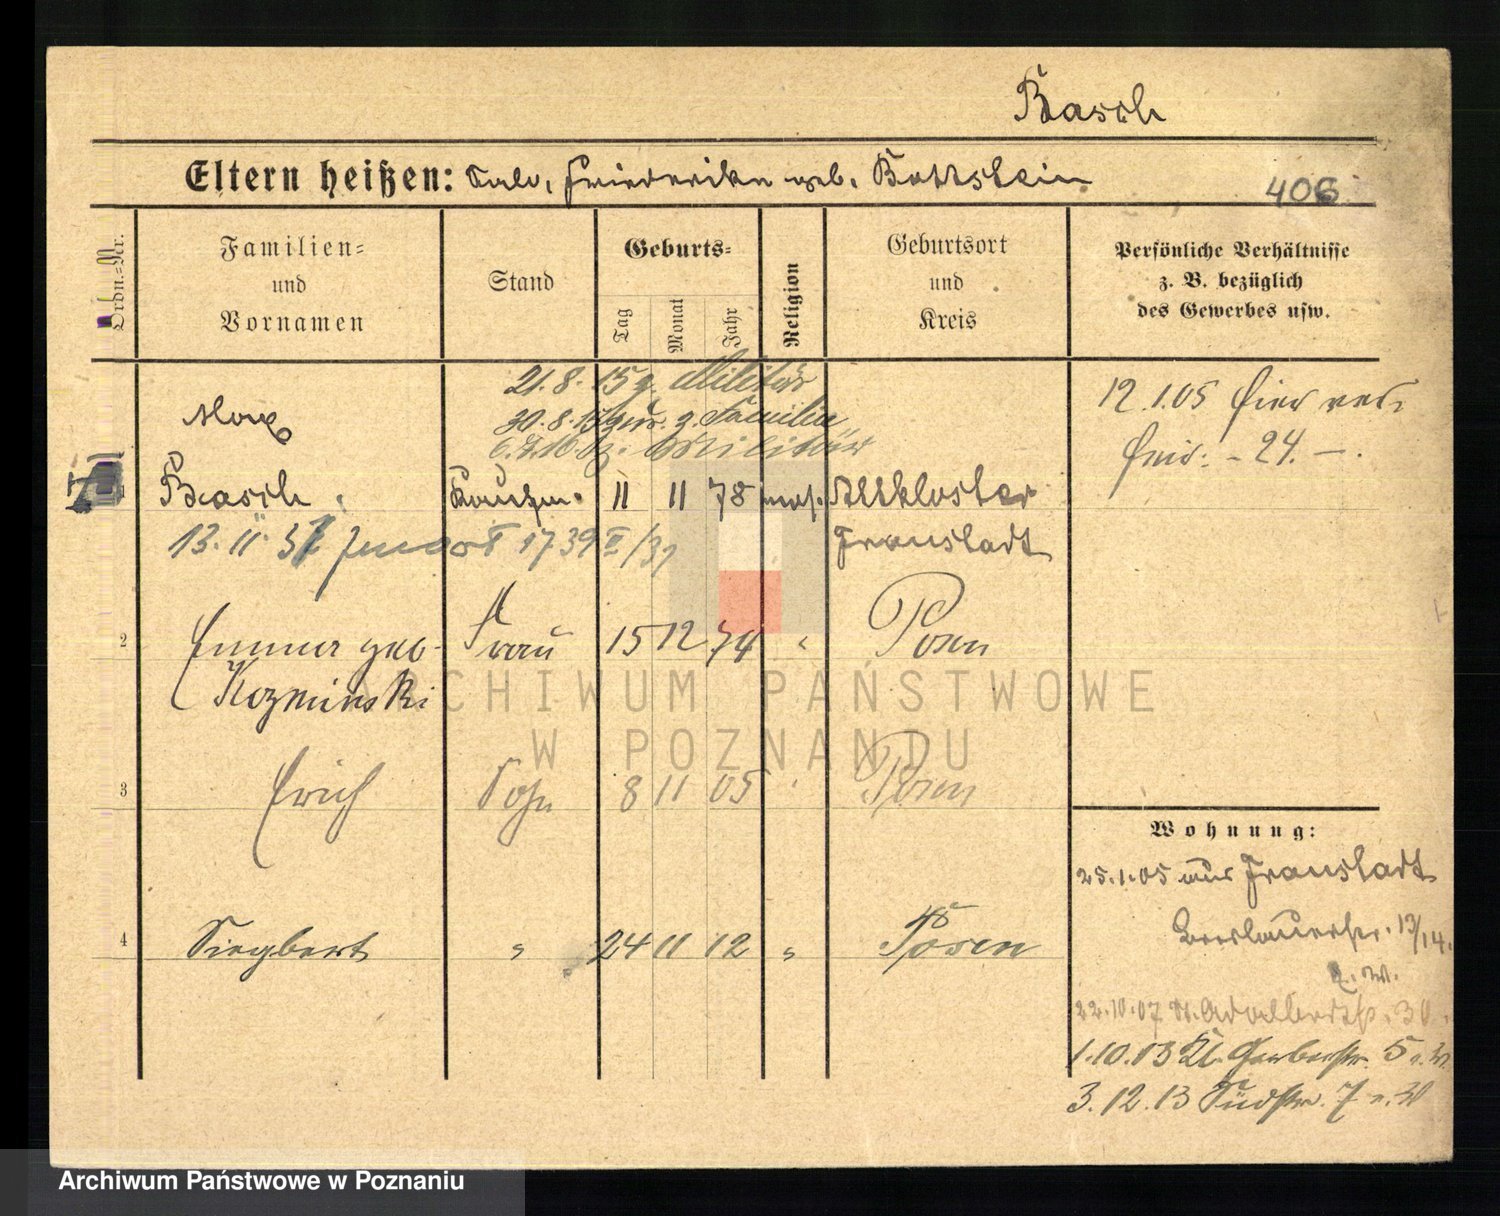 Basch
Eltern heißen: Salo, Friederike geb. Bottstein
406
Ordn.=Nr.
Familien=
und
Vornamen
Stand
Geburts=
Tag
Monat
Jahr
Religion
Geburtsort
und
Kreis
Persönliche Verhältnisse
z. B. bezüglich
des Gewerbes usw.
21.8.15 z. Militär
30.8.15 zur. z. Familie
6.7.16. z. Militär
12.1.05 hier
24.
Max
Basch
Kaufm.
11 11 78 mos. Altkloster
Fraustadt
13.11.31 1739 II/31
2 Emma geb.
Kozminski
Frau 15 12 74 " Posen
3 Erich Sohn 8 11 05 " Posen
4 Siegbert " 24 11 12 " Posen
Wohnung:
25.1.05 aus Fraustadt
Breslauerstr. 13/14.
22.10.07 St. Adalbertstr. 30.
1.10.13 Kl. Gerberstr. 5 v. W.
3.12.13 Südstr. 7 v. W
ARCHIWUM PAŃSTWOWE
W POZNANIU
Archiwum Państwowe w Poznaniu